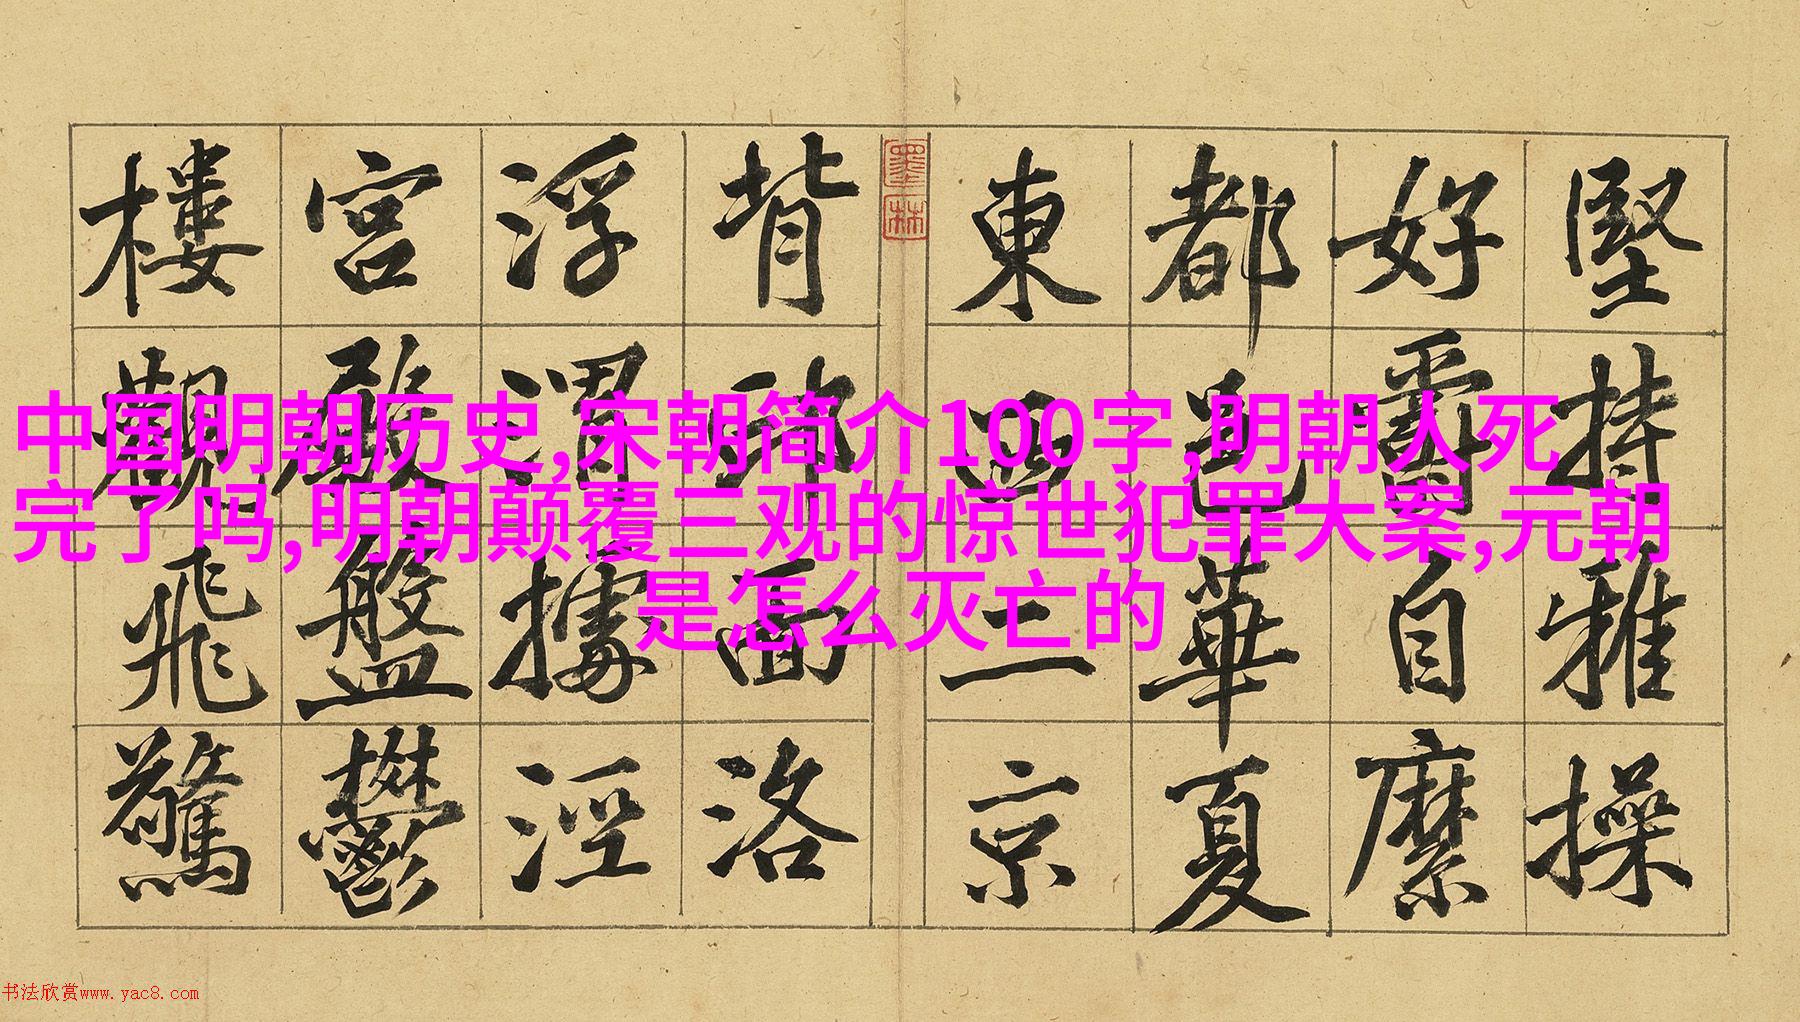 堅持雅操
好爵自縻
都邑華夏
東西二京
墨林
背邙面洛
浮渭據涇
宮殿盤鬱
樓觀飛驚
中国明朝历史,宋朝简介100字,明朝人死
完了吗,明朝颠覆三观的惊世犯罪大案,元朝
是怎么灭亡的
书法欣赏www.yac8.com